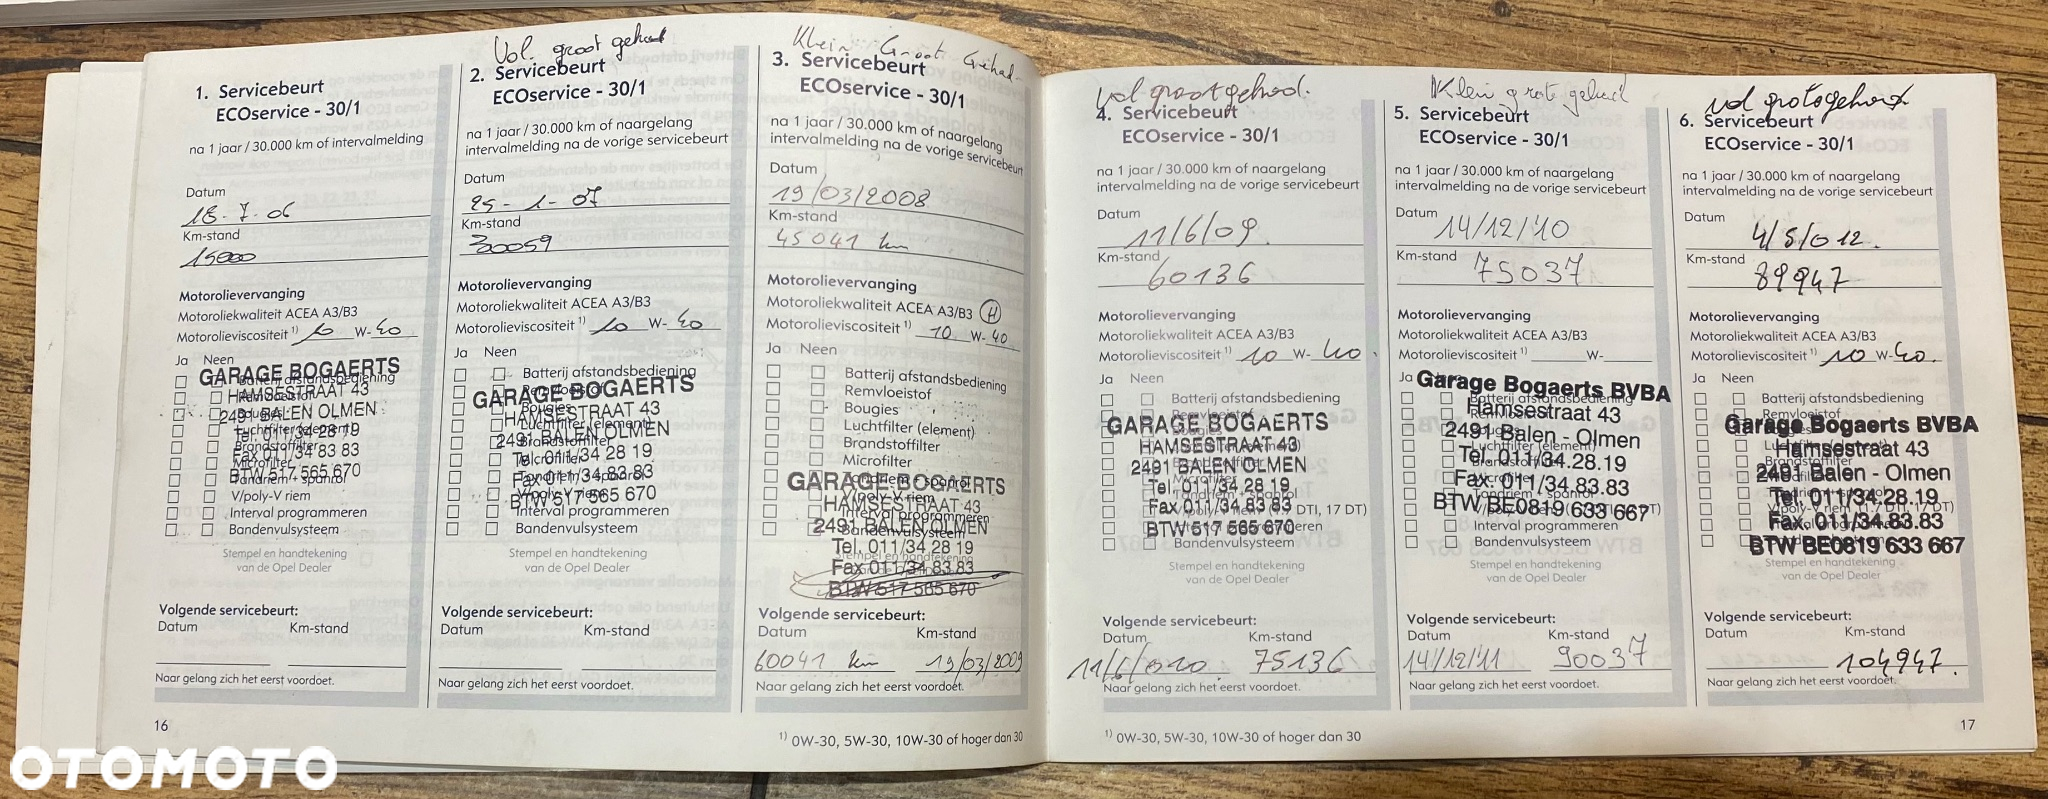 1. Servicebeurt
ECOservice - 30/1
na 1 jaar / 30.000 km of intervalmelding
Datum
18-7-06
Km-stand
15000
Motorolievervanging
Motoroliekwaliteit ACEA A3/B3
Motorolieviscositeit 1) 10 W- 40
Ja Neen
GARAGE BOGAERTS
Batterij afstandsbediening
HAMSESTRAAT 43
Remvloeistof
2491 BALEN OLMEN
Bougies
Luchtfilter (element)
Tel. 011/34 28 19
Brandstoffilter
Fax 011/34 83 83
Microfilter
BTW 517 565 670
Tandriem + spanrol
V/poly-V riem
Interval programmeren
Bandenvulsysteem
Stempel en handtekening
van de Opel Dealer
Volgende servicebeurt:
Datum Km-stand
Naar gelang zich het eerst voordoet.
16
Vol. groot gehad
2. Servicebeurt
ECOservice - 30/1
na 1 jaar / 30.000 km of naargelang
intervalmelding na de vorige servicebeurt
Datum
25-1-07
Km-stand
30059
Motorolievervanging
Motoroliekwaliteit ACEA A3/B3
Motorolieviscositeit 1) 10 W- 40
Ja Neen
Batterij afstandsbediening
GARAGE BOGAERTS
Remvloeistof
HAMSESTRAAT 43
Bougies
Luchtfilter (element)
2491 BALEN OLMEN
Brandstoffilter
Tel. 011/34 28 19
Microfilter
Fax 011/34.83.83
BTW 517 565 670
V/poly-V riem
Interval programmeren
Bandenvulsysteem
Stempel en handtekening
van de Opel Dealer
Volgende servicebeurt:
Datum Km-stand
Naar gelang zich het eerst voordoet.
Klein Groot Gehad
3. Servicebeurt
ECOservice - 30/1
na 1 jaar / 30.000 km of naargelang
intervalmelding na de vorige servicebeurt
Datum
19/03/2008
Km-stand
45041 km
Motorolievervanging
Motoroliekwaliteit ACEA A3/B3 H
Motorolieviscositeit 1) 10 W- 40
Ja Neen
Batterij afstandsbediening
Remvloeistof
Bougies
Luchtfilter (element)
Brandstoffilter
Microfilter
GARAGE BOGAERTS
Tandriem + spanrol
V/poly-V riem
HAMSESTRAAT 43
Interval programmeren
2491 BALEN OLMEN
Bandenvulsysteem
Tel. 011/34 28 19
Stempel en handtekening
Fax 011/34 83.83
BTW 517 565 670
Volgende servicebeurt:
Datum Km-stand
60041 km 19/03/2009
Naar gelang zich het eerst voordoet.
1) 0W-30, 5W-30, 10W-30 of hoger dan 30
vol groot gehad.
4. Servicebeurt
ECOservice - 30/1
na 1 jaar / 30.000 km of naargelang
intervalmelding na de vorige servicebeurt
Datum
11/6/09.
Km-stand
60136
Motorolievervanging
Motoroliekwaliteit ACEA A3/B3
Motorolieviscositeit 1) 10 W- 40.
Ja Neen
Batterij afstandsbediening
Remvloeistof
GARAGE BOGAERTS
HAMSESTRAAT 43
2491 BALEN OLMEN
Microfilter
Tel. 011/34 28 19
Tandriem + spanrol
Fax 011/34 83 83
BTW 517 565 670
Bandenvulsysteem
Stempel en handtekening
van de Opel Dealer
Volgende servicebeurt:
Datum Km-stand
11/6/010. 75136
Naar gelang zich het eerst voordoet.
1) 0W-30, 5W-30, 10W-30 of hoger dan 30
Klein groot gehad
5. Servicebeurt
ECOservice - 30/1
na 1 jaar / 30.000 km of naargelang
intervalmelding na de vorige servicebeurt
Datum
14/12/'10
Km-stand
75037
Motorolievervanging
Motoroliekwaliteit ACEA A3/B3
Motorolieviscositeit 1) W-
Ja
Garage Bogaerts BVBA
Batterij afstandsbediening
Hamsestraat 43
2491 Balen - Olmen
Luchtfilter (element)
Tel. 011/34.28.19
Fax. 011/34.83.83
BTW BE0819 633 667
Interval programmeren
Bandenvulsysteem
Stempel en handtekening
van de Opel Dealer
Volgende servicebeurt:
Datum Km-stand
14/12/'11 90037
Naar gelang zich het eerst voordoet.
6. Servicebeurt
ECOservice - 30/1
na 1 jaar / 30.000 km of naargelang
intervalmelding na de vorige servicebeurt
Datum
4/5/012.
Km-stand
89947
Motorolievervanging
Motoroliekwaliteit ACEA A3/B3
Motorolieviscositeit 1) 10 W- 40.
Ja Neen
Batterij afstandsbediening
Remvloeistof
Garage Bogaerts BVBA
Hamsestraat 43
2491 Balen - Olmen
Tel. 011/34.28.19
Fax. 011/34.83.83
BTW BE0819 633 667
Stempel en handtekening
van de Opel Dealer
Volgende servicebeurt:
Datum Km-stand
104947.
Naar gelang zich het eerst voordoet.
17
OTOMOTO